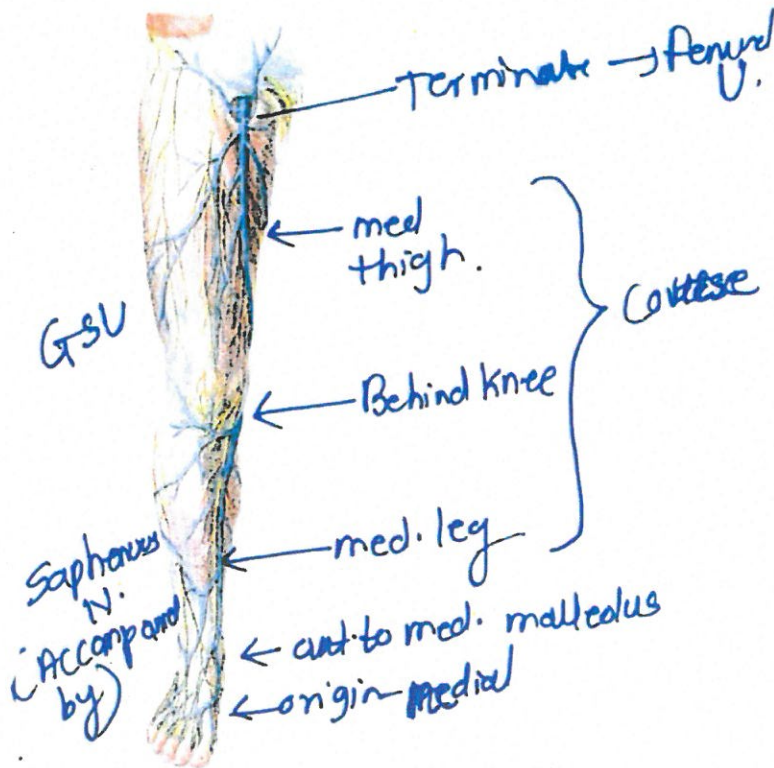 Terminate → Femoral
V.
med
thigh.
Course
GSV
Behind knee
med. leg
Saphenous
N.
(Accompanied
by)
ant. to med. malleolus
origin medial